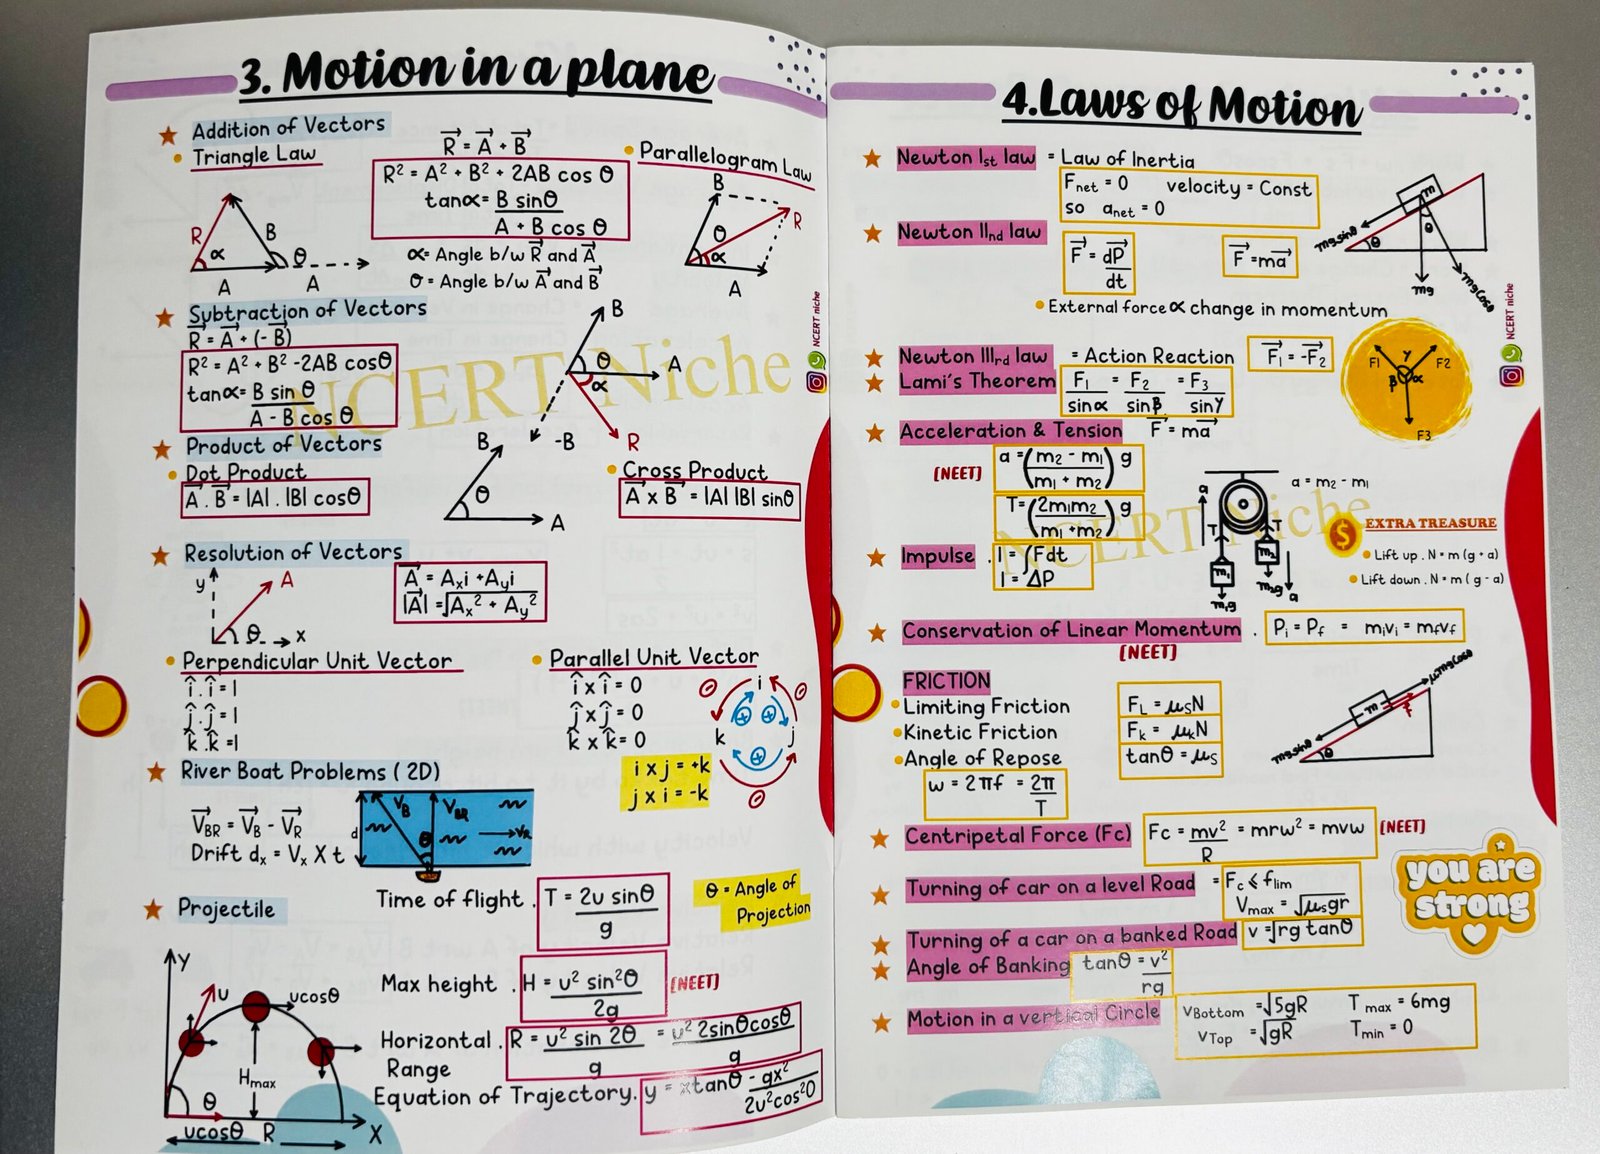 3. Motion in a plane
Addition of Vectors
Triangle Law
R⃗ = A⃗ + B⃗
R² = A² + B² + 2AB cos θ
tanα = B sinθ / A + B cos θ
α = Angle b/w R⃗ and A⃗
θ = Angle b/w A⃗ and B⃗
Parallelogram Law
R B α θ A A
B R θ α A
Subtraction of Vectors
R⃗ = A⃗ + (- B⃗)
R² = A² + B² -2AB cosθ
tanα = B sin θ / A - B cos θ
B θ A α -B R
Product of Vectors
Dot Product
A⃗ . B⃗ = |A| . |B| cosθ
B θ A
Cross Product
A⃗ x B⃗ = |A| |B| sinθ
Resolution of Vectors
y A θ x
A⃗ = Axi + Ayi
|A⃗| = √Ax² + Ay²
Perpendicular Unit Vector
î . î = 1
ĵ . ĵ = 1
k̂ . k̂ = 1
Parallel Unit Vector
î x î = 0
ĵ x ĵ = 0
k̂ x k̂ = 0
i j k
i x j = +k
j x i = -k
River Boat Problems ( 2D)
V⃗BR = V⃗B - V⃗R
Drift dx = Vx X t
d VB VBR θ VR
Projectile
Time of flight . T = 2u sinθ / g
θ = Angle of
Projection
Max height . H = u² sin²θ / 2g [NEET]
Horizontal . R = u² sin 2θ / g = u² 2sinθcosθ / g
Range
Equation of Trajectory. y = xtanθ - gx² / 2u²cos²θ
Y u ucosθ Hmax θ ucosθ R X
NCERT Niche
NCERT niche
4.Laws of Motion
Newton Ist law = Law of Inertia
Fnet = 0 velocity = Const
so anet = 0
Newton IInd law
F⃗ = dP⃗ / dt
F⃗ = ma⃗
External force α change in momentum
m mg sinθ θ θ mg mg cosθ
Newton IIIrd law = Action Reaction
F⃗1 = -F⃗2
Lami's Theorem F1 / sinα = F2 / sinβ = F3 / sinγ
F1 γ F2 β α F3
Acceleration & Tension F⃗ = ma⃗
[NEET]
a = (m2 - m1 / m1 + m2) g
T = (2m1m2 / m1 + m2) g
a = m2 - m1
a T T m1 m2 m1g m2g a
EXTRA TREASURE
Lift up . N = m (g + a)
Lift down . N = m ( g - a)
Impulse . I = ∫Fdt
I = ΔP
Conservation of Linear Momentum . Pi = Pf = mivi = mfvf
[NEET]
FRICTION
Limiting Friction FL = μsN
Kinetic Friction Fk = μkN
Angle of Repose tanθ = μs
w = 2πf = 2π / T
μmg cosθ m f mg sinθ θ
Centripetal Force (Fc) Fc = mv² / R = mrw² = mvw [NEET]
Turning of car on a level Road = Fc ⩽ flim
Vmax = √μsgr
Turning of a car on a banked Road v = √rg tanθ
Angle of Banking tanθ = v² / rg
Motion in a vertical Circle VBottom = √5gR T max = 6mg
VTop = √gR Tmin = 0
you are
strong
NCERT Niche
NCERT niche